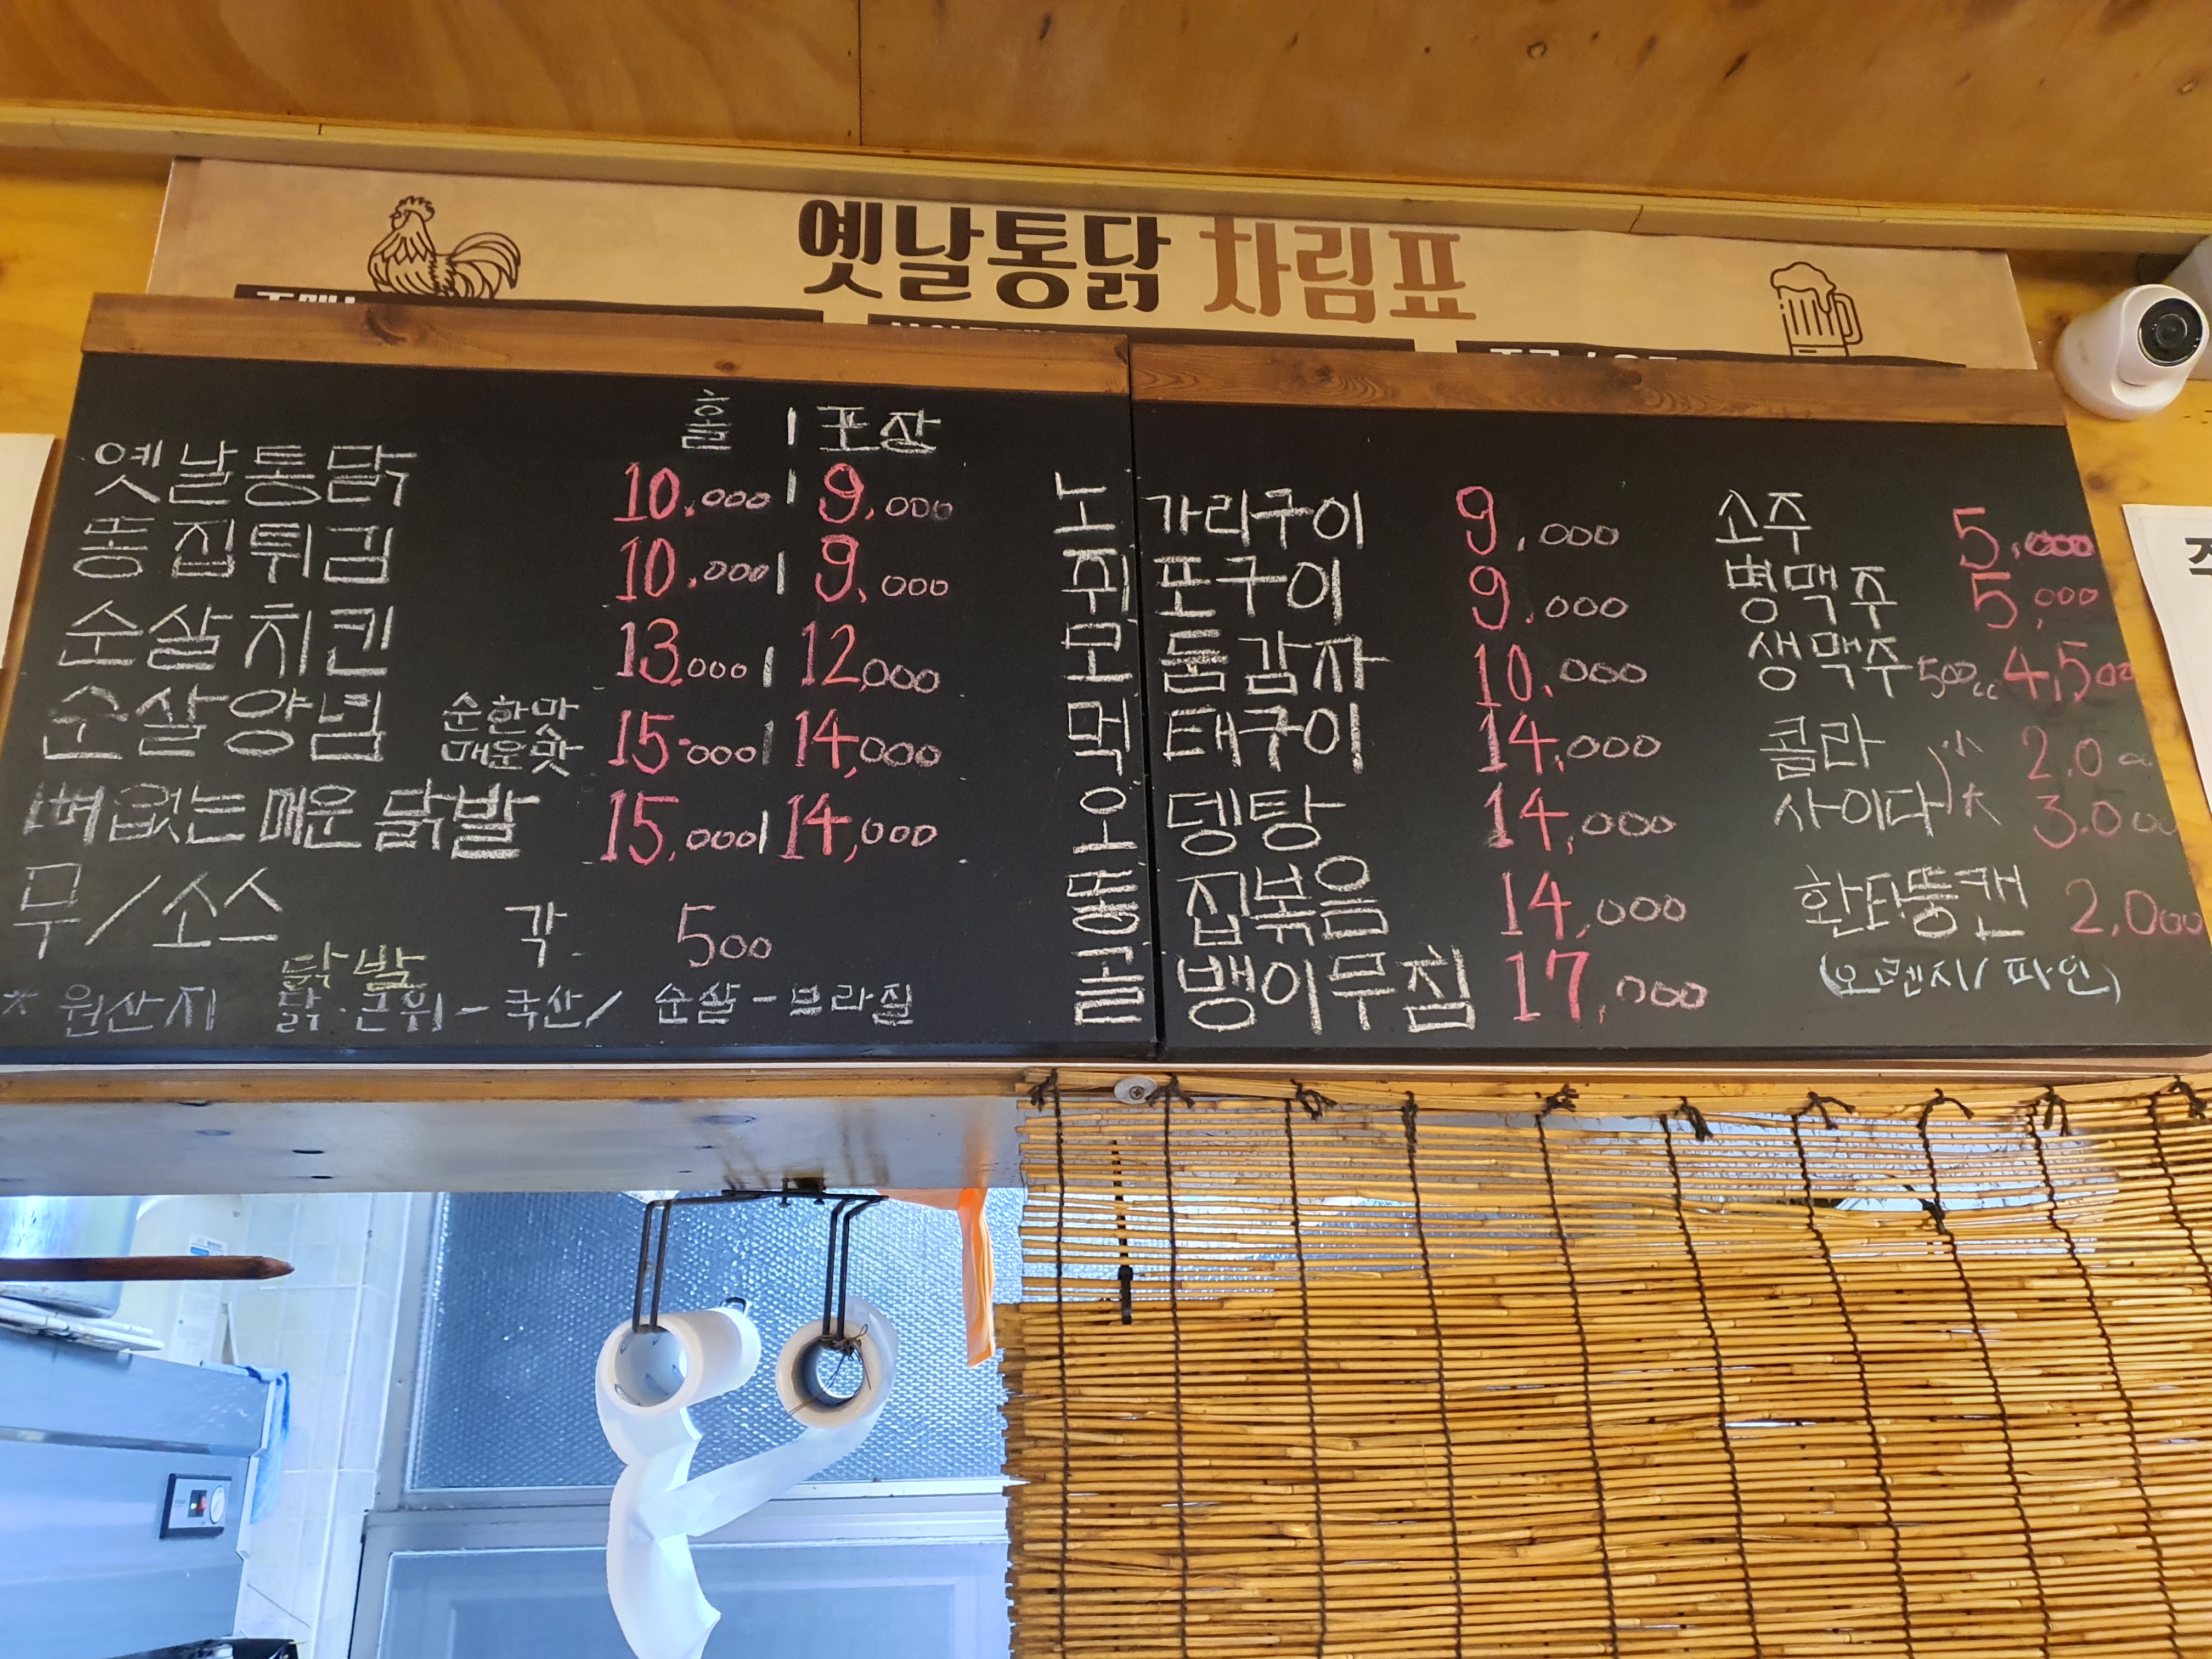 옛날통닭 차림표
홀 | 포장
옛날통닭 10.000 | 9,000
똥집튀김 10.000 | 9,000
순살치킨 13.000 | 12,000
순살양념 순한맛 매운맛 15.000 | 14,000
뼈없는매운닭발 15,000 | 14,000
무/소스 각 500
닭발
* 원산지 닭·근위-국산/ 순살-브라질
노가리구이 9,000
쥐포구이 9.000
모둠감자 10,000
먹태구이 14,000
오뎅탕 14,000
똥집볶음 14,000
골뱅이무침 17,000
소주 5,000
병맥주 5,000
생맥주 500cc 4,500
콜라 小 2,000
사이다 大 3.000
환타뚱캔 2,000
(오렌지/파인)